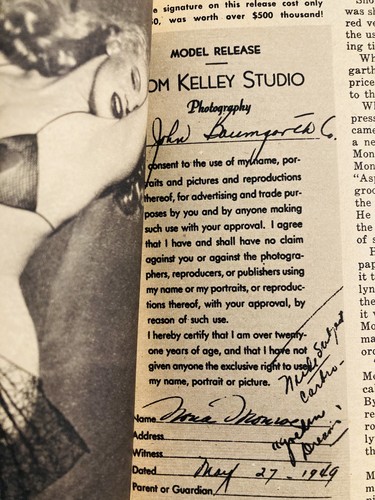 e signature on this release cost only
0, was worth over $500 thousand!
MODEL RELEASE
OM KELLEY STUDIO
Photography
John Baumgarth C.
consent to the use of my name, por-
raits and pictures and reproductions
thereof, for advertising and trade pur-
poses by you and by anyone making
such use with your approval. I agree
that I have and shall have no claim
against you or against the photogra-
phers, reproducers, or publishers using
my name or my portraits, or reproduc-
tions thereof, with your approval, by
reason of such use.
I hereby certify that I am over twenty-
one years of age, and that I have not
given anyone the exclusive right to use
my name, portrait or picture.
Nude
"Golden
Dream"
Name Mona Monroe
Address
Witness
Dated May 27 - 1949
Parent or Guardian
was s
red ve
the us
ing ti
Wh
garth
price
to th
W
press
came
a ne
Mon
Mon
"Asp
groo
of th
He
the
of s
H
pap
it t
lyn
the
it v
Mo
ma
ord